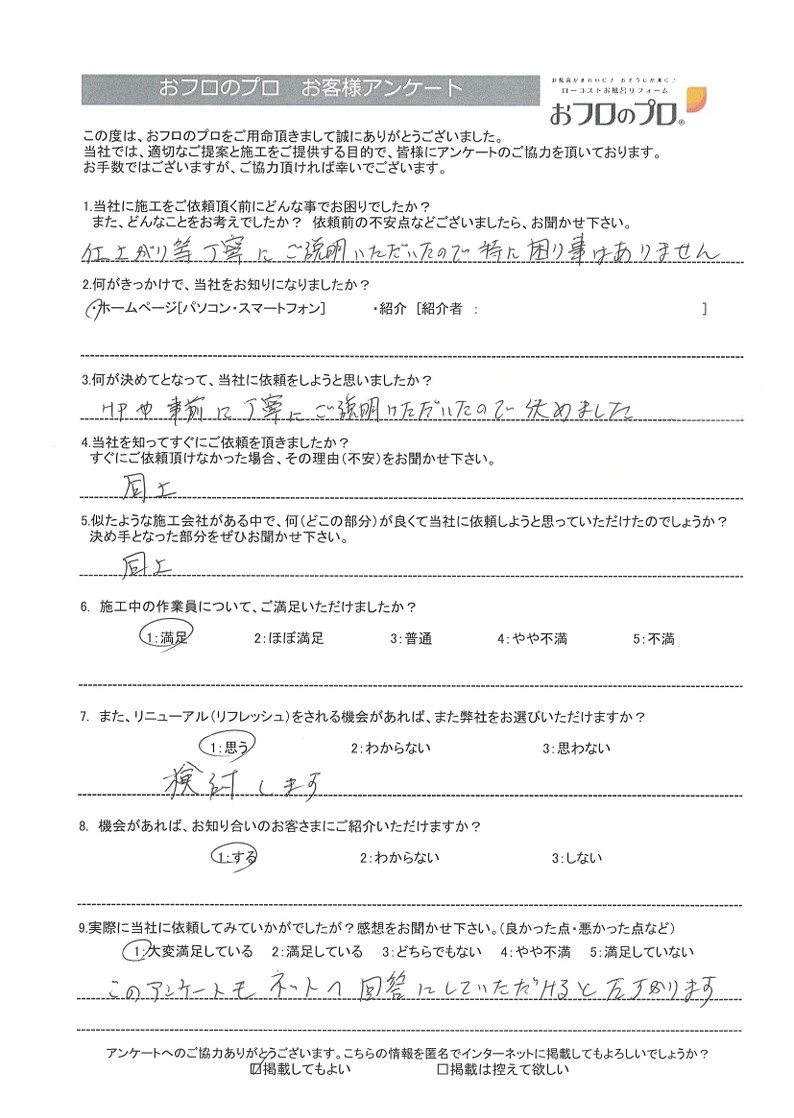 おフロのプロ　お客様アンケート
お風呂がきれいに♪ おそうじが楽に♪
ローコストお風呂リフォーム
おフロのプロ®
この度は、おフロのプロをご用命頂きまして誠にありがとうございました。
当社では、適切なご提案と施工をご提供する目的で、皆様にアンケートのご協力を頂いております。
お手数ではございますが、ご協力頂ければ幸いでございます。
1.当社に施工をご依頼頂く前にどんな事でお困りでしたか？
また、どんなことをお考えでしたか？ 依頼前の不安点などございましたら、お聞かせ下さい。
仕上がり等丁寧にご説明いただいたので特に困り事はありません
2.何がきっかけで、当社をお知りになりましたか？
・ホームページ[パソコン・スマートフォン]　・紹介 [紹介者 :　]
3.何が決めてとなって、当社に依頼をしようと思いましたか？
HPや事前に丁寧にご説明いただいたので決めました
4.当社を知ってすぐにご依頼を頂きましたか？
すぐにご依頼頂けなかった場合、その理由(不安)をお聞かせ下さい。
同上
5.似たような施工会社がある中で、何(どこの部分)が良くて当社に依頼しようと思っていただけたのでしょうか？
決め手となった部分をぜひお聞かせ下さい。
同上
6. 施工中の作業員について、ご満足いただけましたか？
1:満足　2:ほぼ満足　3:普通　4:やや不満　5:不満
7. また、リニューアル(リフレッシュ)をされる機会があれば、また弊社をお選びいただけますか？
1:思う　2:わからない　3:思わない
検討します
8. 機会があれば、お知り合いのお客さまにご紹介いただけますか？
1:する　2:わからない　3:しない
9.実際に当社に依頼してみていかがでしたか？感想をお聞かせ下さい。(良かった点・悪かった点など)
1:大変満足している　2:満足している　3:どちらでもない　4:やや不満　5:満足していない
このアンケートもネットへ回答にしていただけると助かります
アンケートへのご協力ありがとうございます。こちらの情報を匿名でインターネットに掲載してもよろしいでしょうか？
☑掲載してもよい　□掲載は控えて欲しい